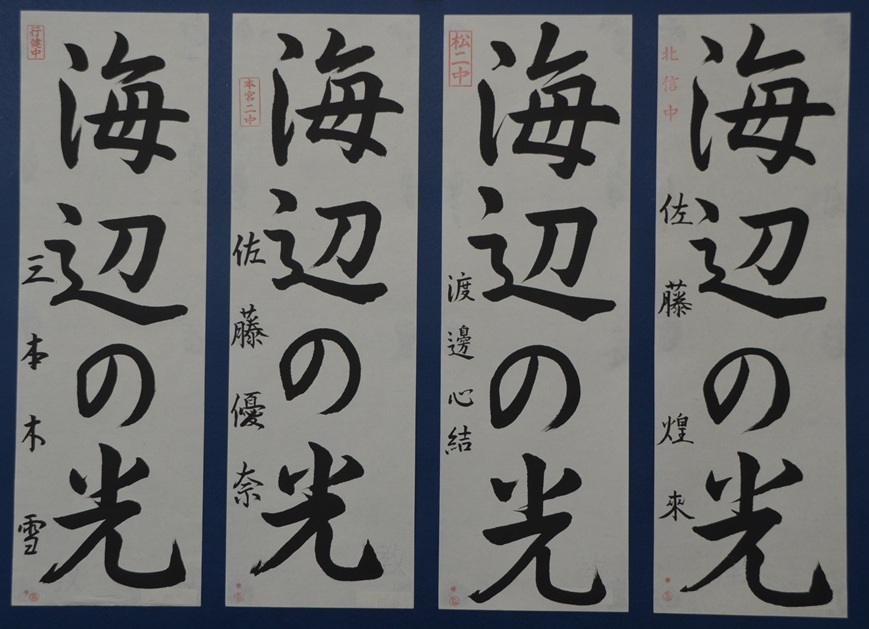 北信中
海辺の光
佐藤煌來
松二中
海辺の光
渡邊心結
本宮二中
海辺の光
佐藤優奈
行健中
海辺の光
三本木雪